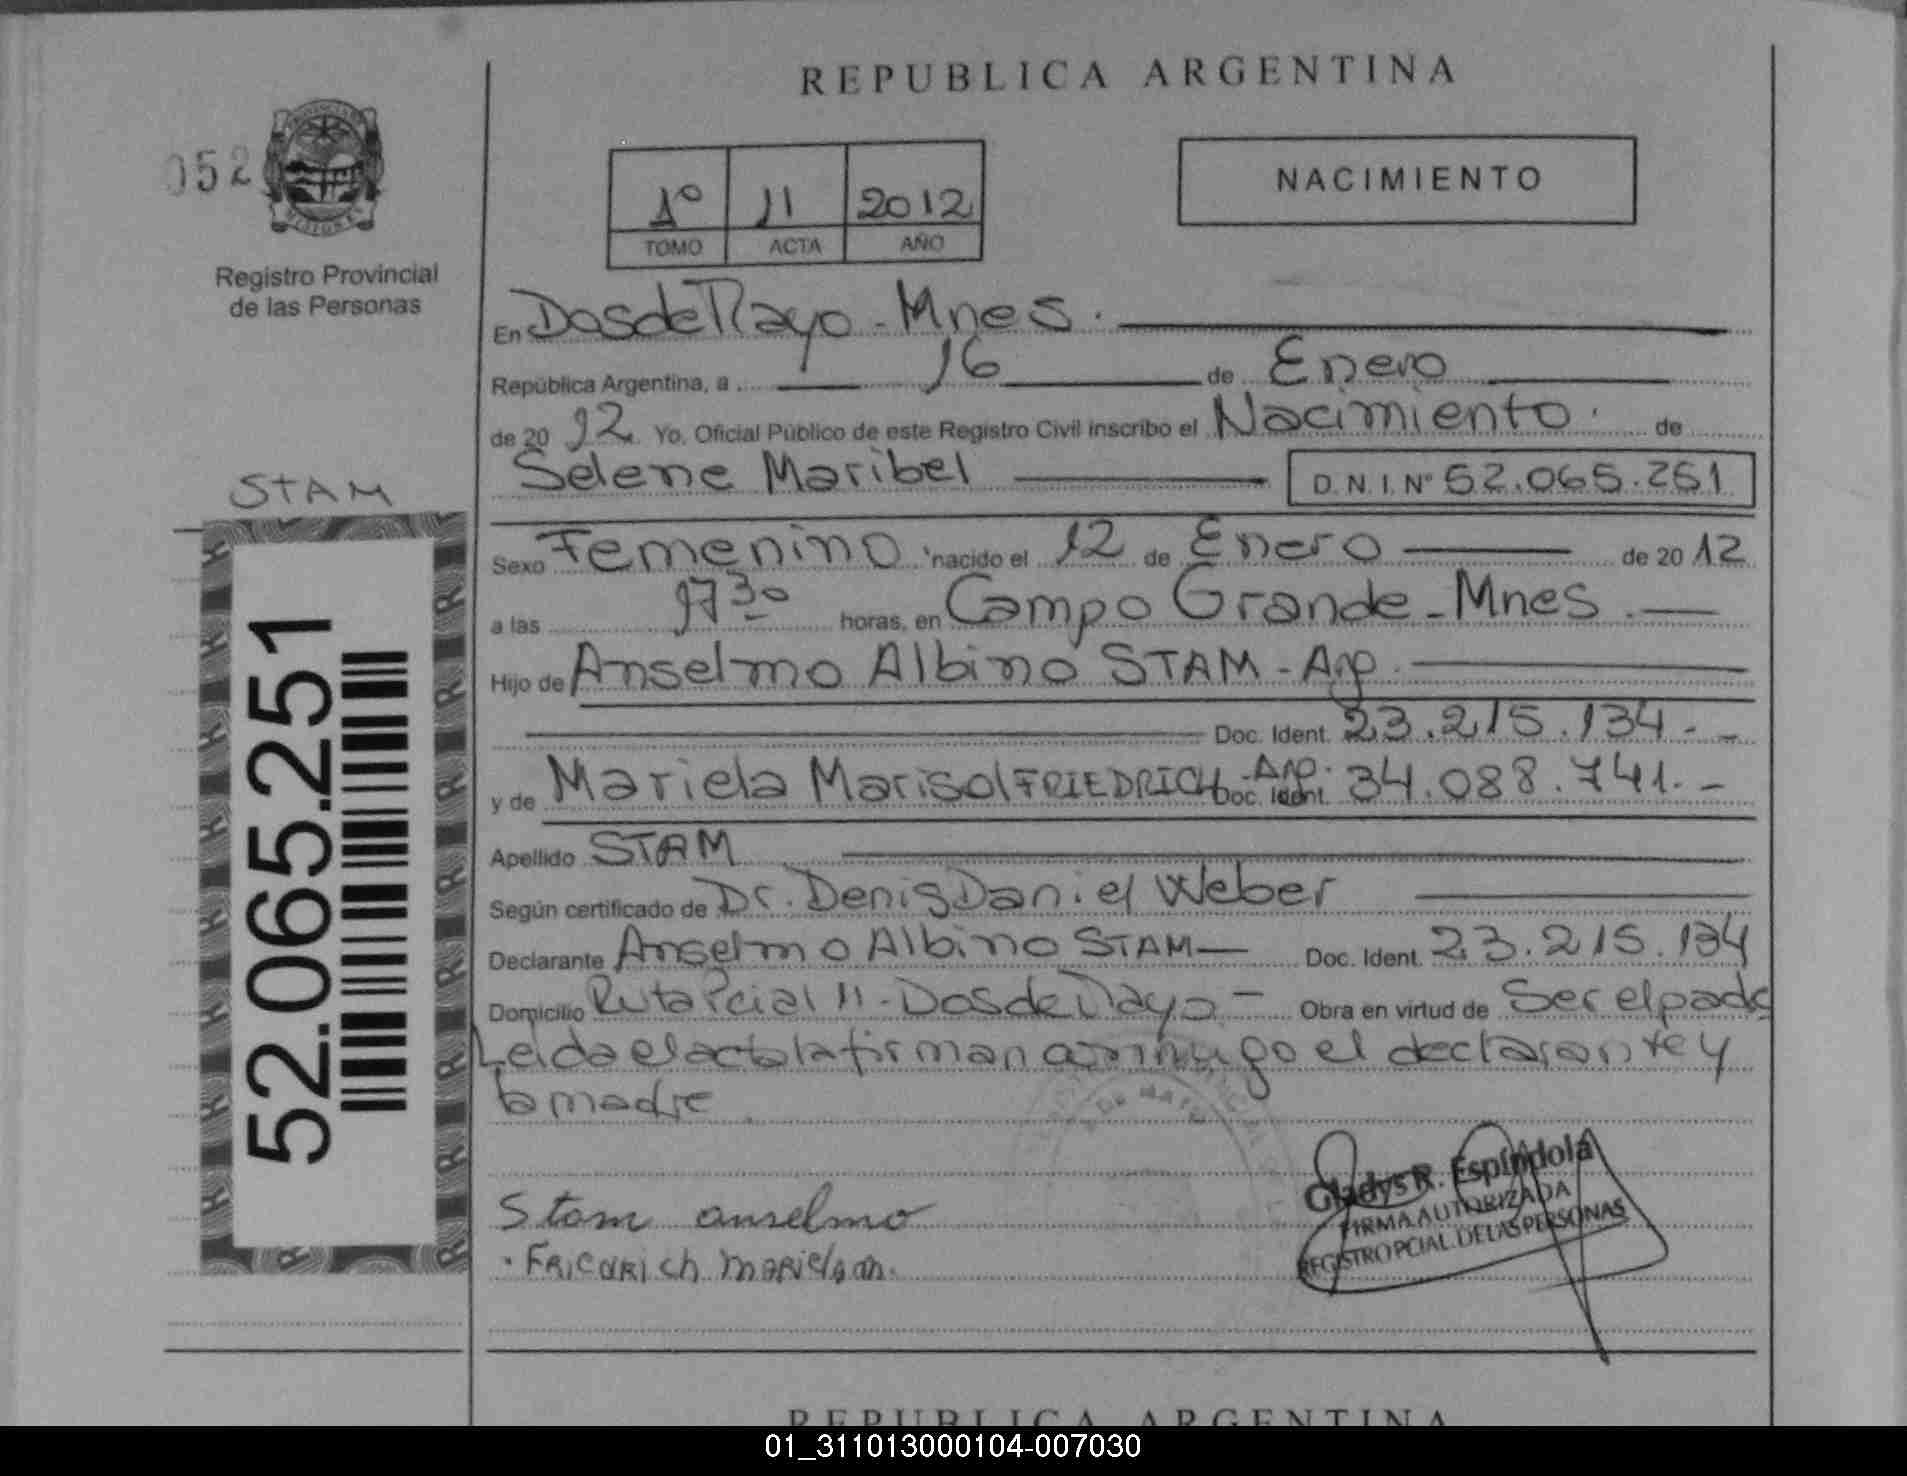 REPUBLICA ARGENTINA
052
1º 11 2012
TOMO ACTA AÑO
NACIMIENTO
Registro Provincial
de las Personas
En Dos de Mayo - Mnes.
República Argentina, a 16 de Enero
de 20 12 Yo, Oficial Público de este Registro Civil inscribo el Nacimiento de
Selene Maribel D.N.I. Nº 52.065.251
STAM
52.065.251
Sexo Femenino nacido el 12 de Enero de 20 12
a las 1730 horas, en Campo Grande - Mnes.
Hijo de Anselmo Albino STAM - Arg.
Doc. Ident. 23.215.134 - -
y de Mariela Marisol FRIEDRICH - Arg. Doc. Ident. 34.088.741. -
Apellido STAM
Según certificado de Dr. Denis Daniel Weber
Declarante Anselmo Albino STAM — Doc. Ident. 23.215.134
Domicilio Ruta Pcial 11 - Dos de Mayo - Obra en virtud de Ser el padre
Leida el acta la firman conmigo el declarante y
la madre
Stam anselmo
Gladys R. Espíndola
FIRMA AUTORIZADA
REGISTRO PCIAL. DE LAS PERSONAS
Friedrich Mariela m.
REPUBLICA ARGENTINA
01_311013000104-007030